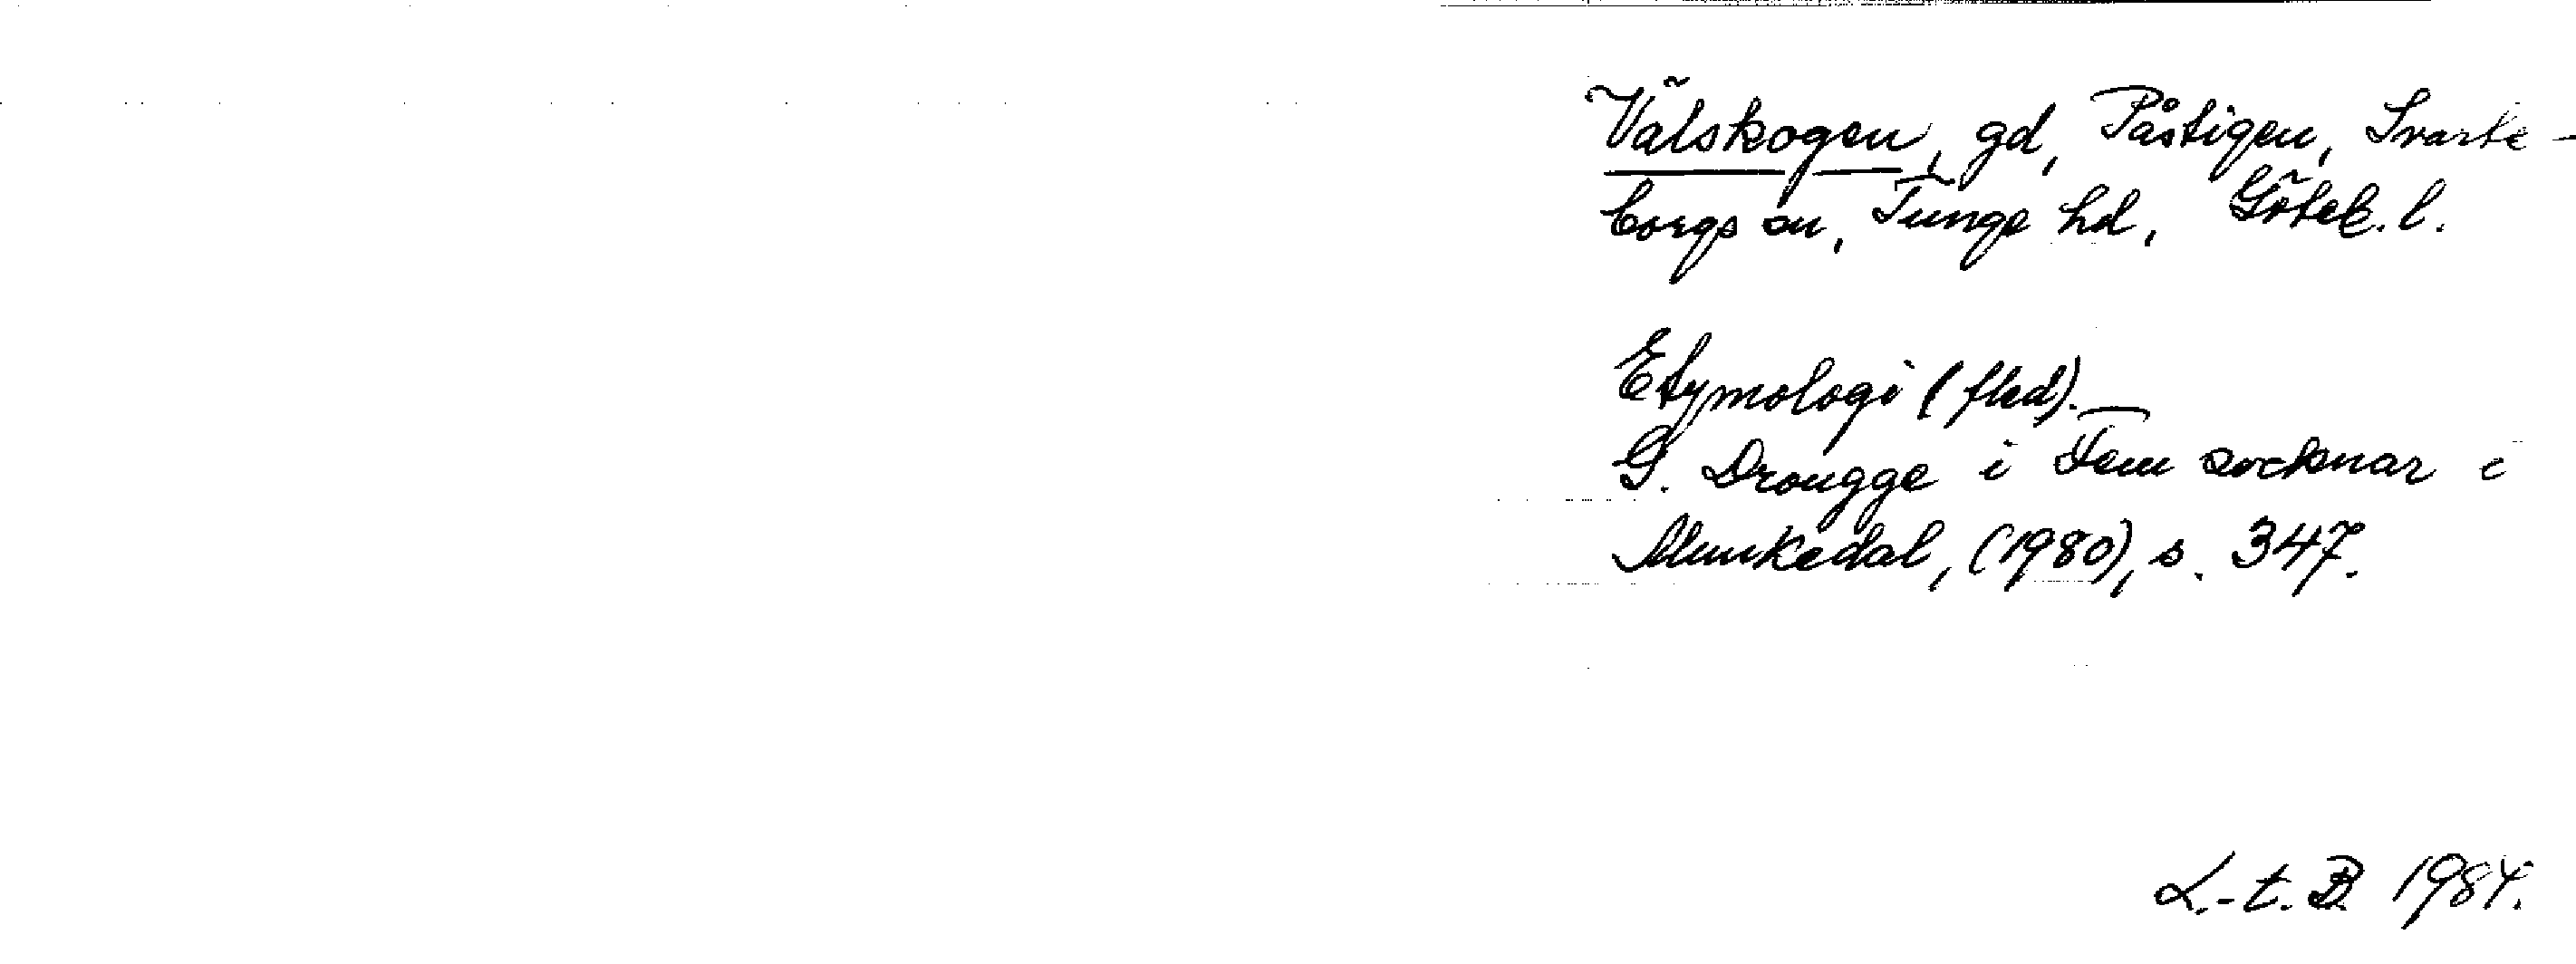 Välskogen, gd, Påstigen, Svarte-
borgs sn, Tunge hd, Göteb. l.
Etymologi (fled).
G. Drougge i Fem socknar i
Munkedal, (1980), s. 347.
L.-t. B. 1984.